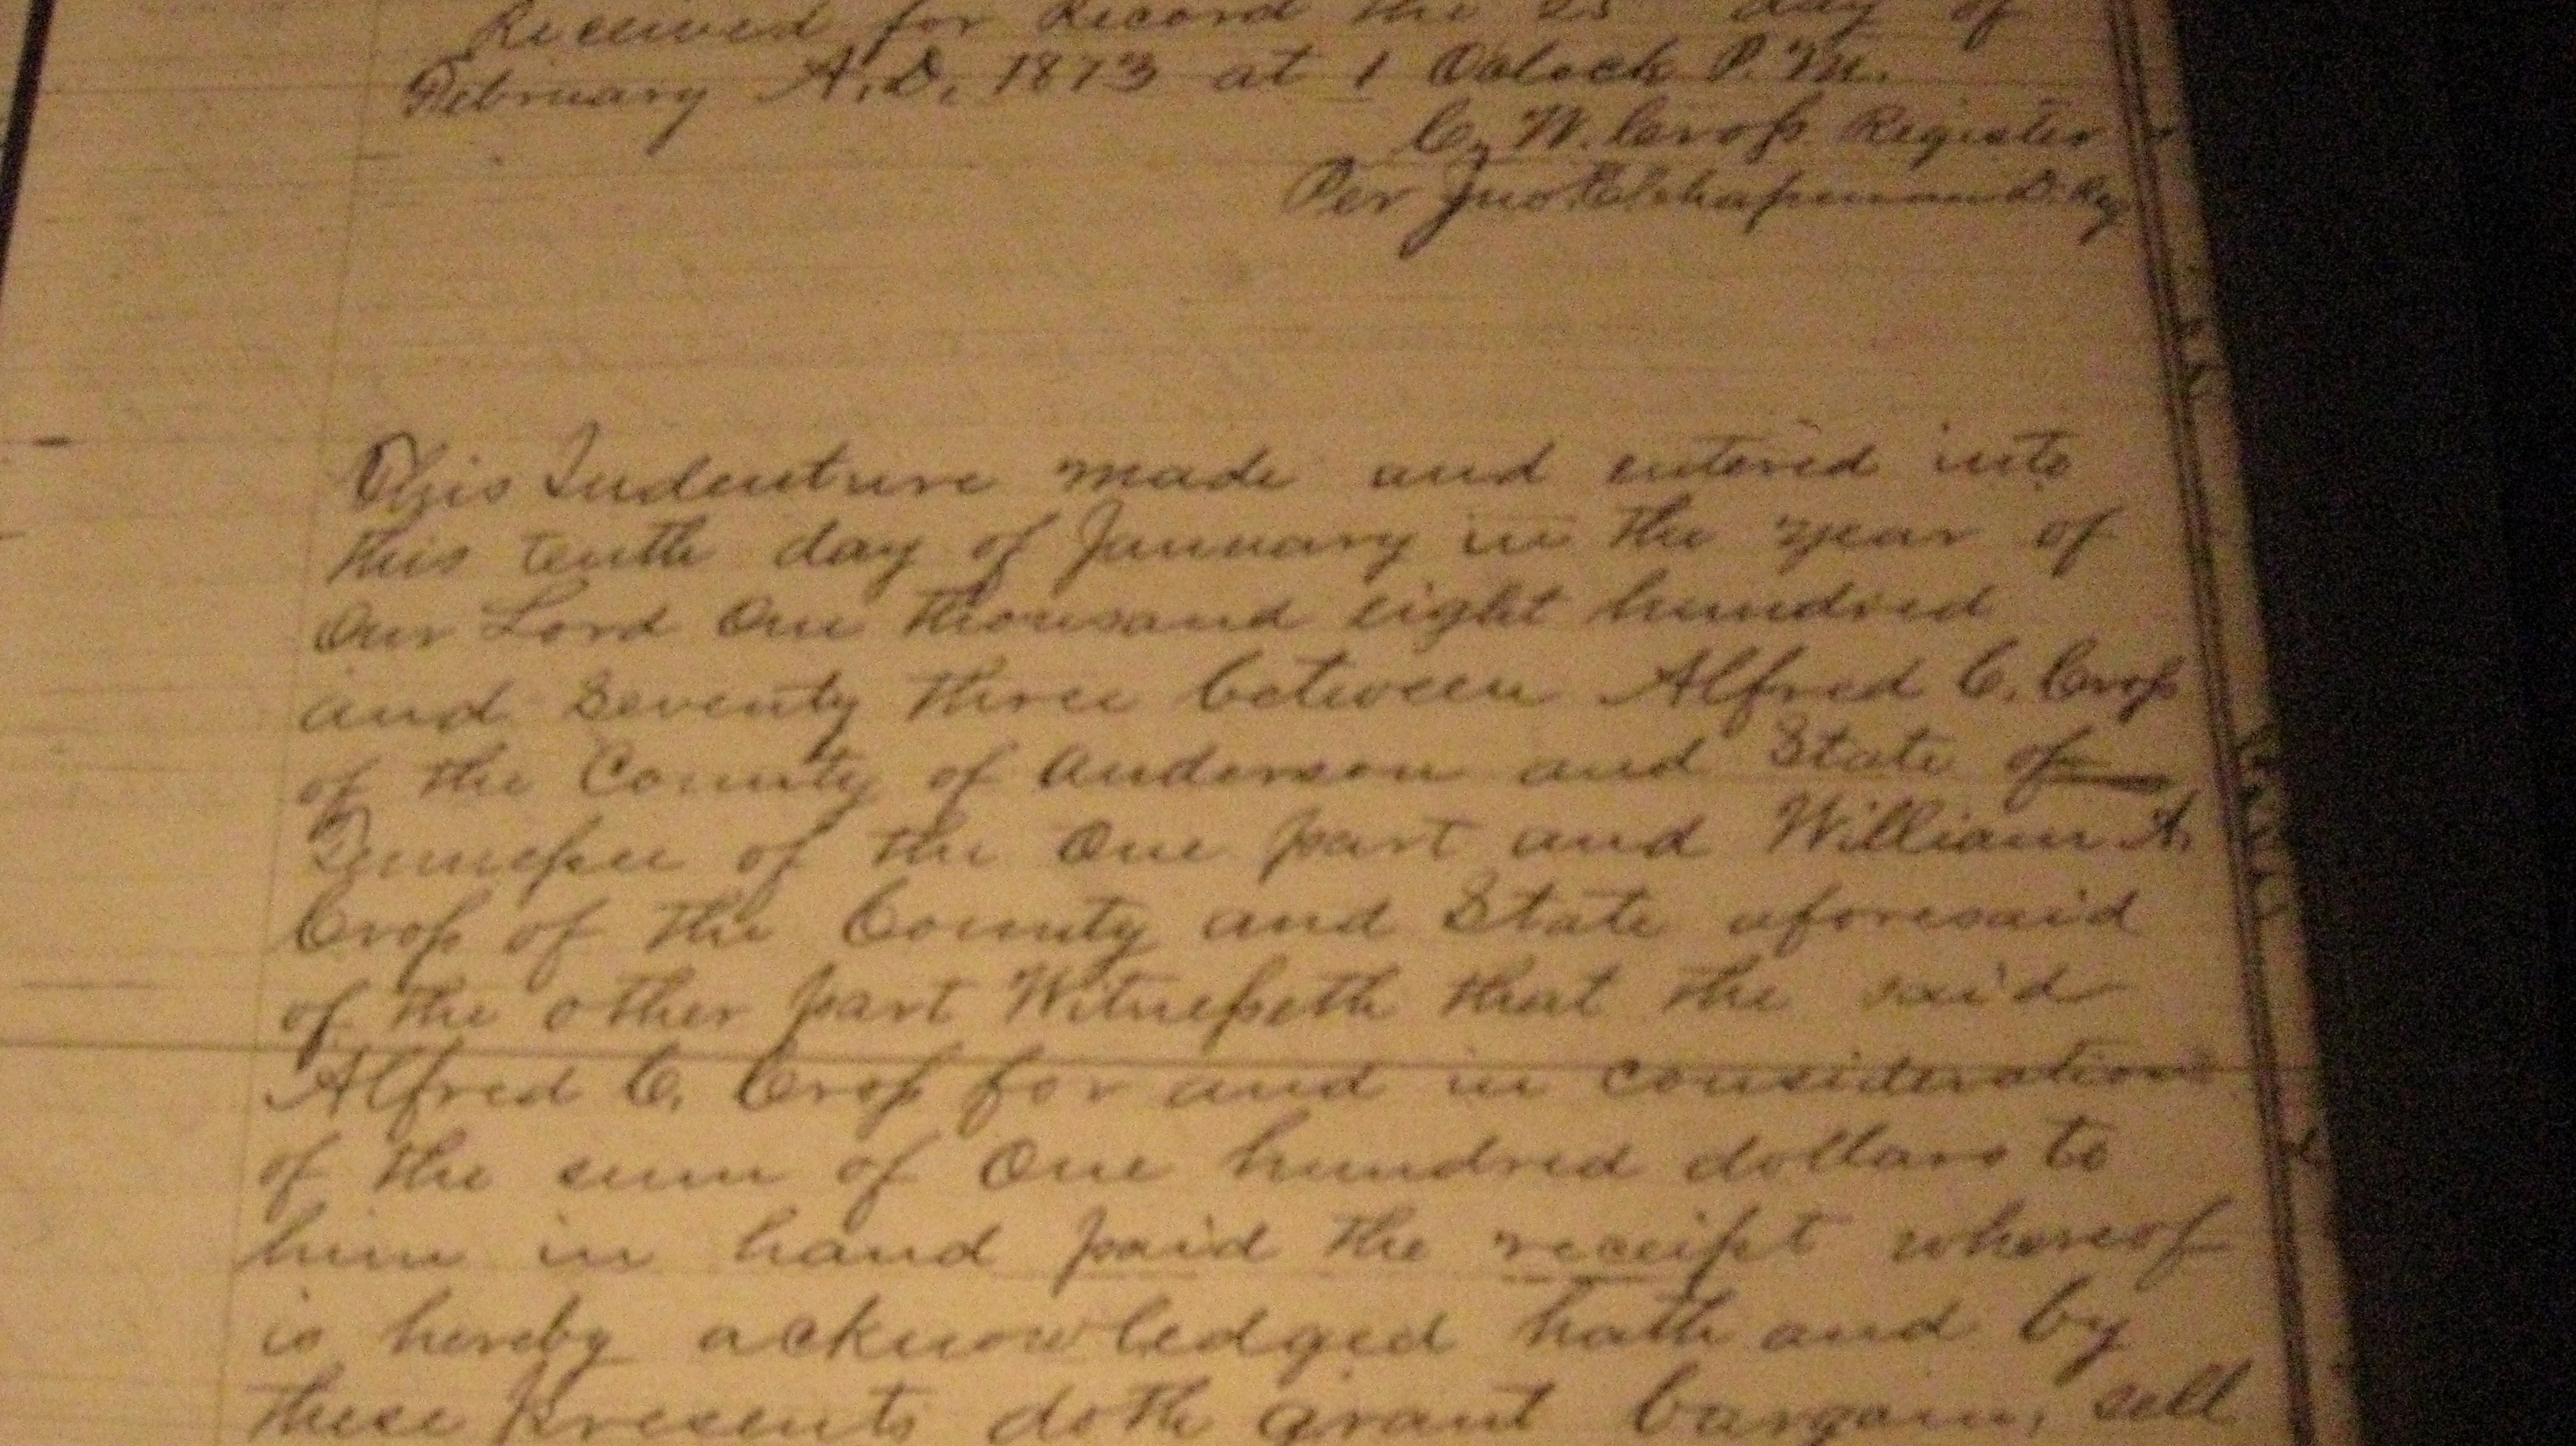 Received for Record the 25 day of
February A.D. 1873 at 1 Oclock P.M.
C. W. Cross Register
Per Jno Chapman D. Reg
This Indenture made and entered into
this tenth day of January in the year of
Our Lord One thousand eight hundred
and Seventy three between Alfred C. Cross
of the County of Anderson and State of
Tennessee of the One part and William A.
Cross of the County and State aforesaid
of the other part Witnesseth that the said
Alfred C. Cross for and in consideration
of the sum of One hundred dollars to
him in hand paid the receipt whereof
is hereby acknowledged hath and by
these presents doth grant bargain, sell